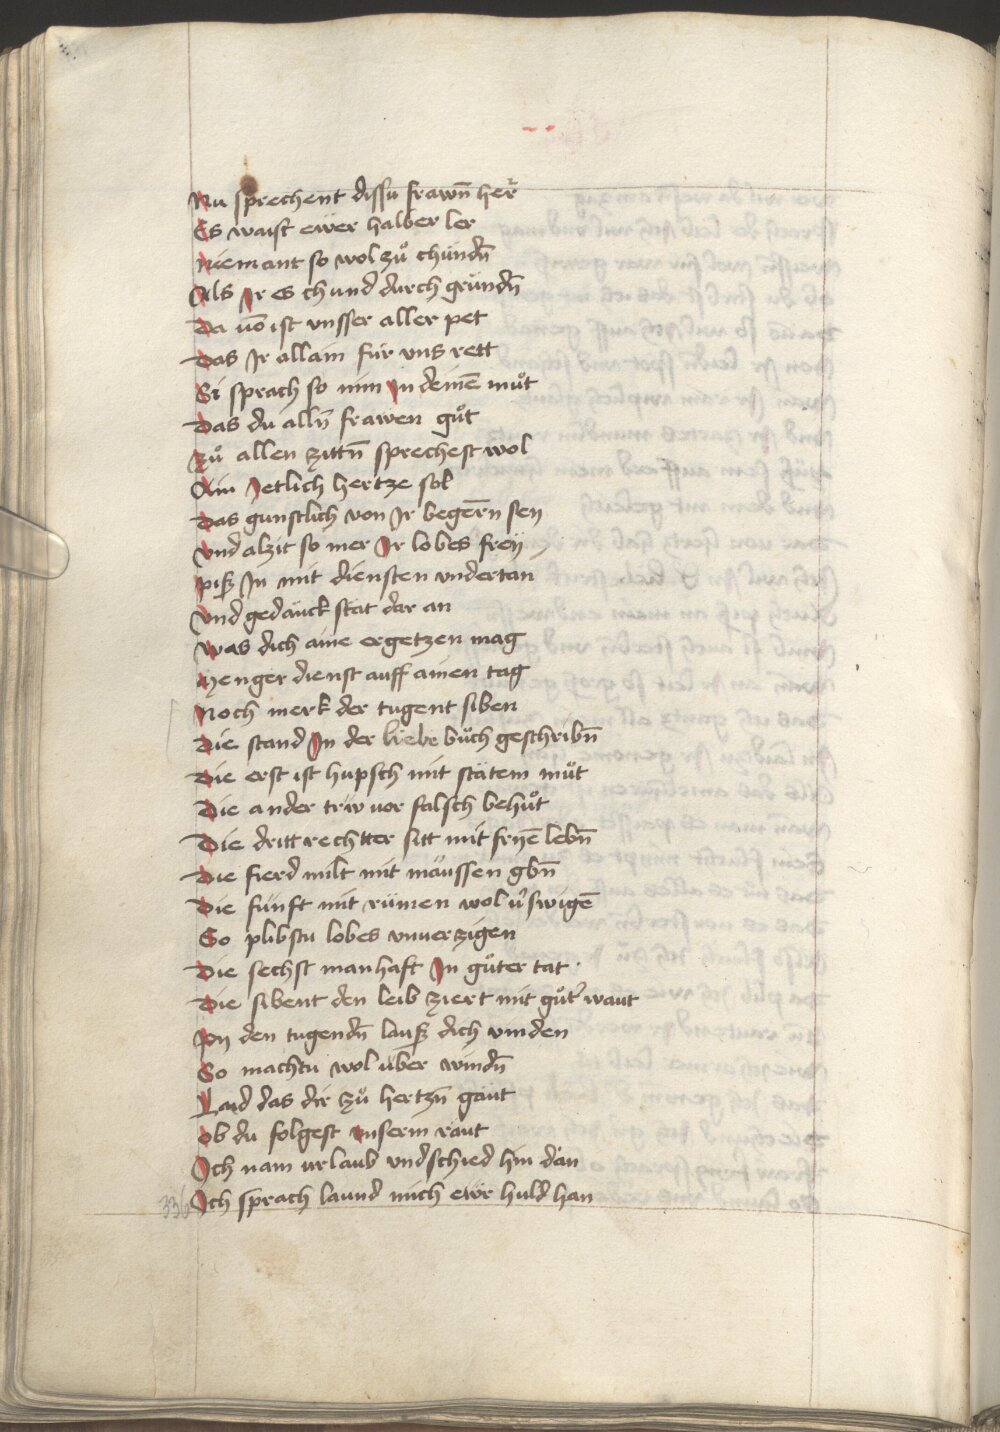 Nu sprechent dissu frawn̄ her̄
Es waist ewer halber ler
Niemant so wol zů chündn̄
Als Ir es chund durch gründn̄
Da uō ist vnsser aller pet
Das Ir allain für vns rett
Si sprach so nim In deinē můt
Das du alln̄ frawen gůt
Zů allen zittn̄ sprechest wol
Ain Jetlich hertze sol
Das gunstlich von Ir begern̄ sey
Vnd alzit so mer Ir lobes frey
Piß In mit diensten vndertan
Vnd gedäuck stät dar an
Was dich aine ergetzen mag
Henger dienst auff ainen tag
Noch merk der tugent siben
Die stand In der liebe bůch geschribn̄
Die erst ist hupsch mit stätem můt
Die ander trẅ vor falsch behůt
Die dritt rechtter sitt mit fryē lebn̄
Die fierd milt mit mäussen gbn̄
Die fünft mit rümen wol v̓swigē
So plibstu lobes vnuerzigen
Die sechst manhaft In gůter tat
Die sibent den leib ziert mit gůt̓ waut
Py den tugendn̄ lauß dich vinden
So machtu wol über windn̄
Laid das dir zů hertzn̄ gäut
Ob du folgest vnserm raut
Ich nam vrlaub vnd schied hin dan
336 Ich sprach laund mich ewr huld han